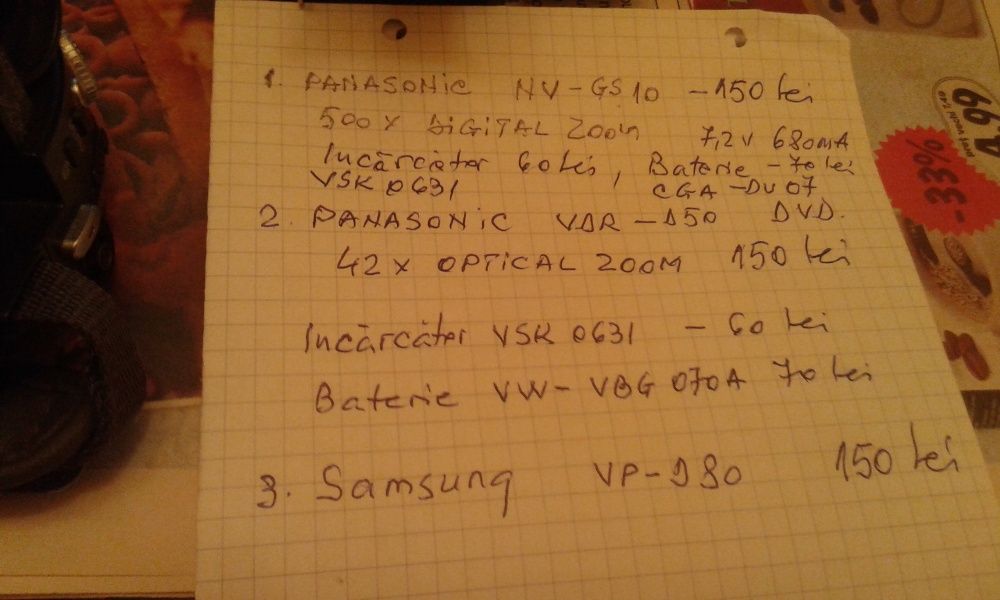 1. PANASONIC NV-GS10 - 150 lei
500X DIGITAL ZOOM 7,2V 680MA
Incărcător 60 lei, Baterie - 70 lei
VSK 0631 CGA-DV07
2. PANASONIC VDR-D50 DVD.
42X OPTICAL ZOOM 150 lei
Incărcător VSK 0631 - 60 lei
Baterie VW-VBG 070A 70 lei
3. Samsung VP-D80 150 lei
4,99
-33%